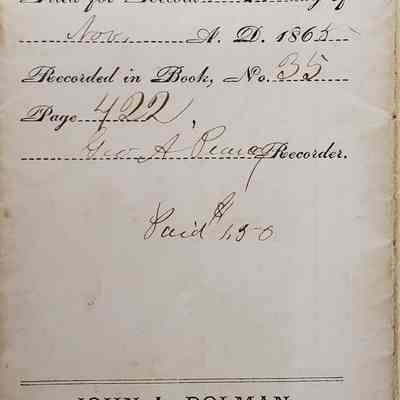 Filed for Record day of
Nov. A. D. 1865
Recorded in Book, No. 35
Page 422,
Geo A Pearcy Recorder.
Paid $1,50
JOHN L. DOLMAN